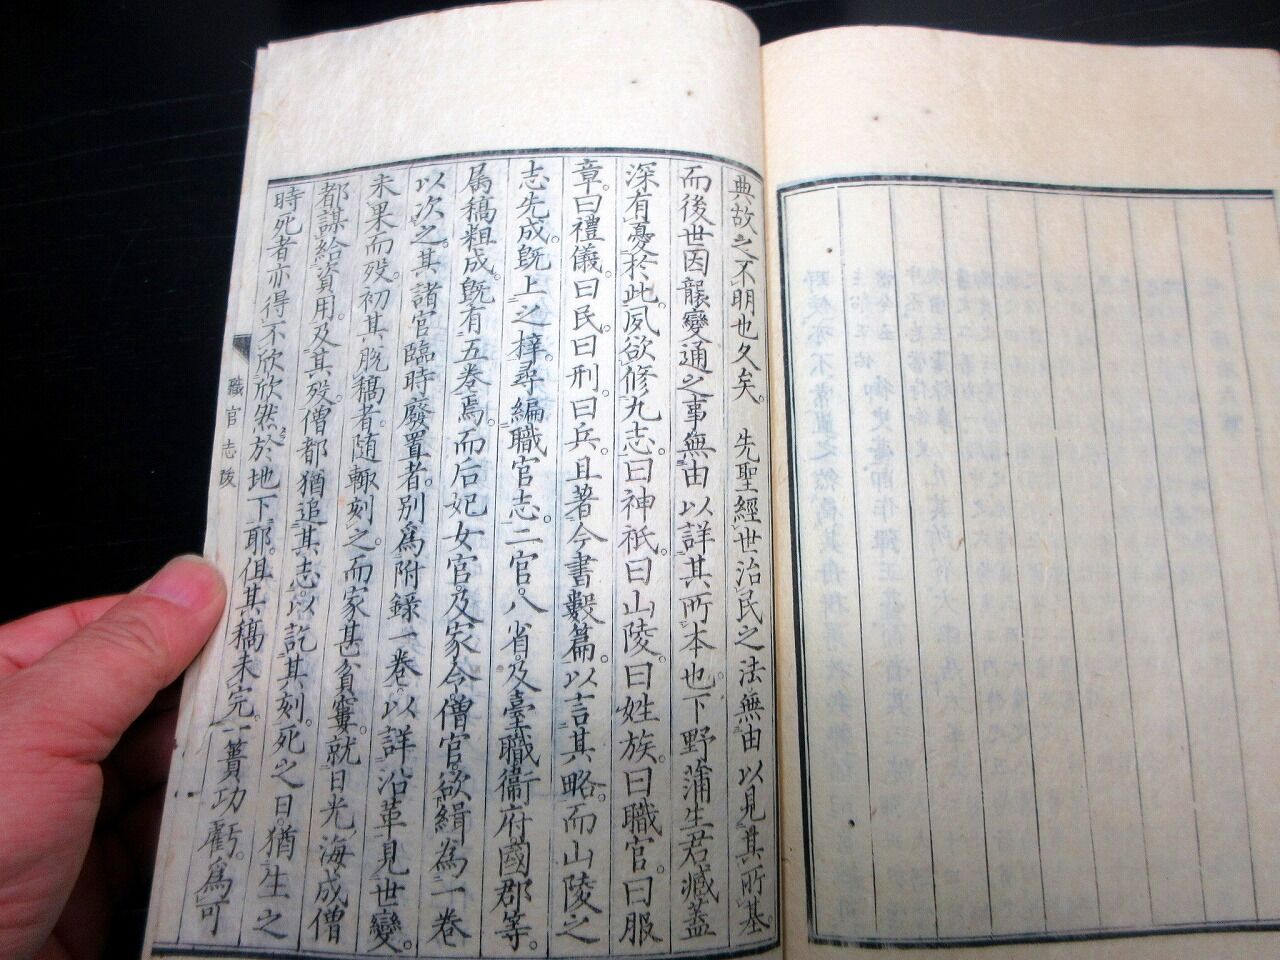 典故之不明也久矣。 先聖經世治民之法無由以見其所基。
而後世因襲變通之事無由以詳其所本也。下野蒲生君臧蓋
深有憂於此。夙欲修九志。曰神祇。曰山陵。曰姓族。曰職官。曰服
章。曰禮儀。曰民。曰刑。曰兵。且著今書數篇。以言其略。而山陵之
志先成。既上之梓。尋編職官志。二官。八省。及臺職衞府國郡等。
属稿粗成。既有五卷焉。而后妃女官。及家令僧官。欲緝為一卷
以次之。其諸官臨時廢置者。別為附錄一卷。以詳沿革見世變。
未果而歿。初其脱稿者。随輙刻之。而家甚貧窶。就日光海成僧
都謀給資用。及其歿。僧都猶追其志。以訖其刻。死之日。猶生之
時。死者亦得不欣欣然於地下耶。但其稿未完。一簣功虧。為可
職官志跋